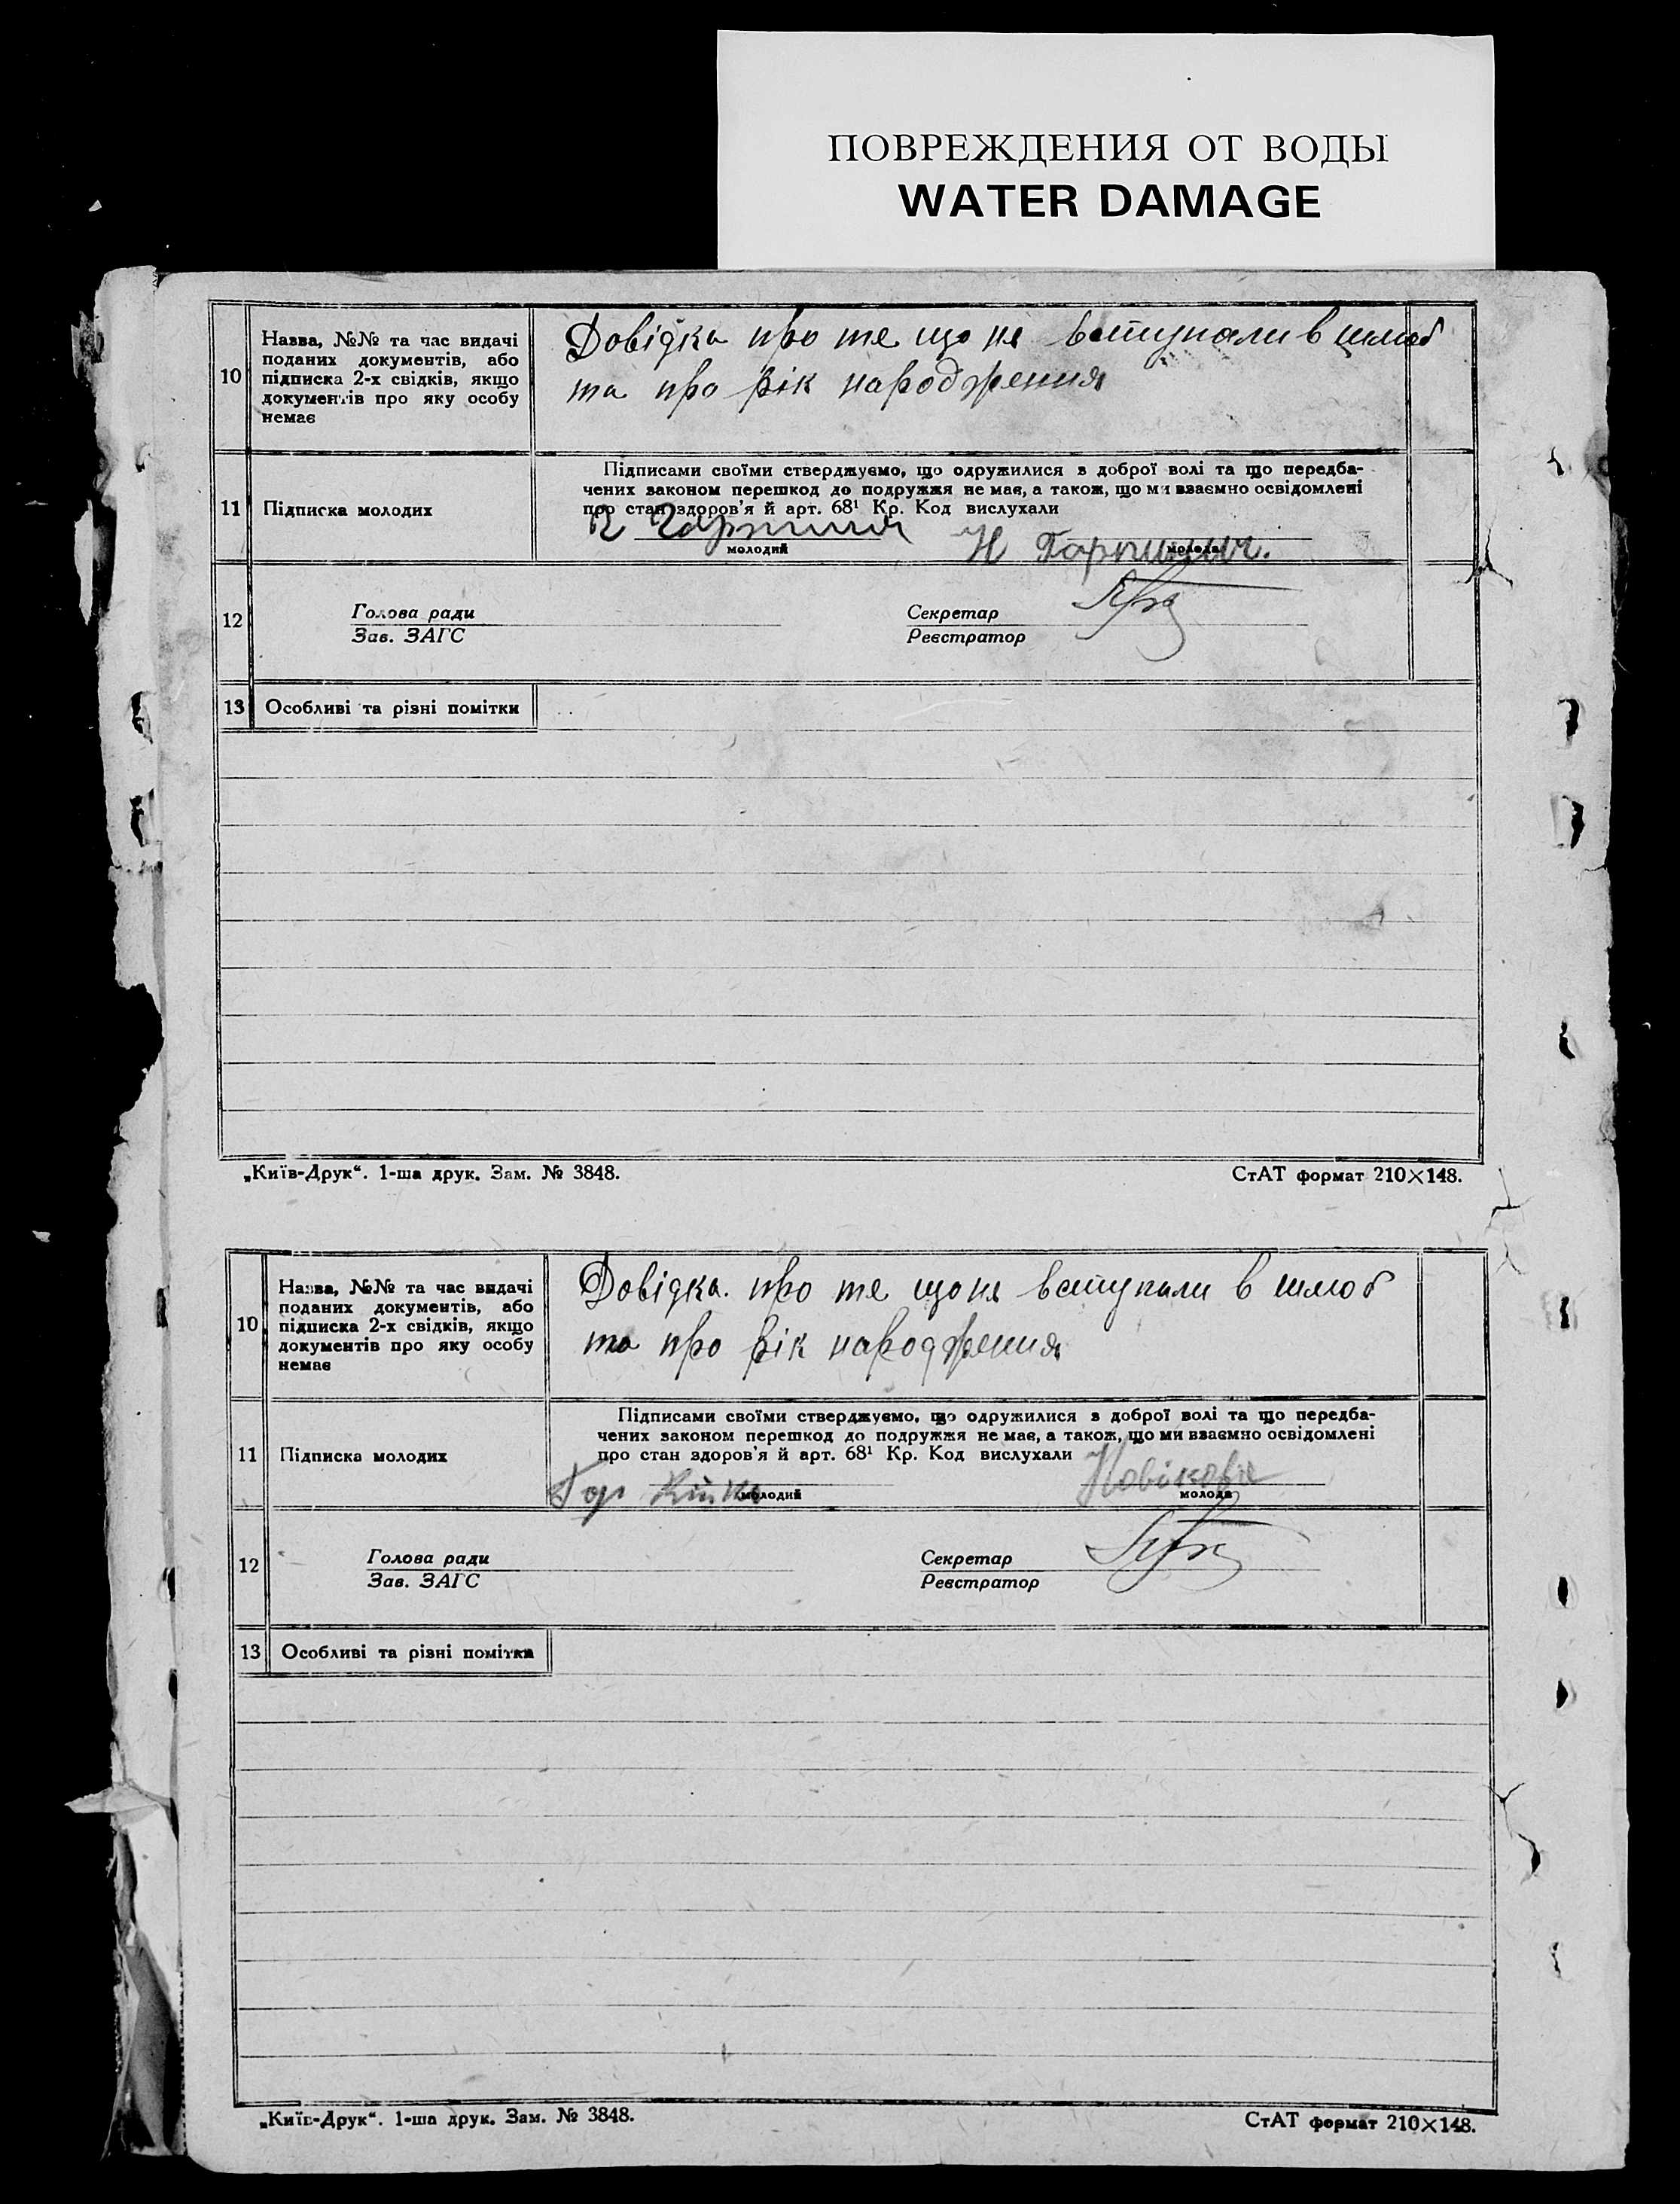 ПОВРЕЖДЕНИЯ ОТ ВОДЫ
WATER DAMAGE
10
Назва, №№ та час видачі
поданих документів, або
підписка 2-х свідків, якщо
документів про яку особу
немає
Довідка про те що не вступали в шлюб
та про рік народження
11
Підписка молодих
Підписами своїми стверджуємо, що одружилися з доброї волі та що передба-
чених законом перешкод до подружжя не має, а також, що ми взаємно освідомлені
про стан здоров'я й арт. 68¹ Кр. Код вислухали
молодий
молода
12
Голова ради
Зав. ЗАГС
Секретар
Реєстратор
13
Особливі та різні помітки
„Київ-Друк“. 1-ша друк. Зам. № 3848.
СтАТ формат 210×148.
10
Назва, №№ та час видачі
поданих документів, або
підписка 2-х свідків, якщо
документів про яку особу
немає
Довідка. про те що не вступали в шлюб
та про рік народження
11
Підписка молодих
Підписами своїми стверджуємо, що одружилися з доброї волі та що передба-
чених законом перешкод до подружжя не має, а також, що ми взаємно освідомлені
про стан здоров'я й арт. 68¹ Кр. Код вислухали
Новікова
молодий
молода
12
Голова ради
Зав. ЗАГС
Секретар
Реєстратор
13
Особливі та різні помітки
„Київ-Друк“. 1-ша друк. Зам. № 3848.
СтАТ формат 210×148.